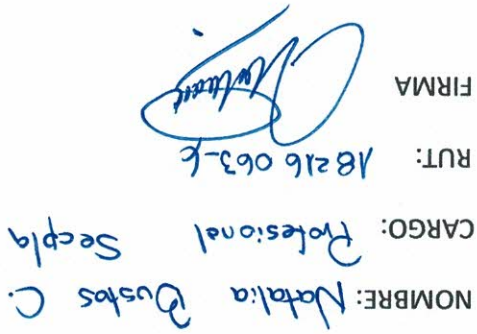 NOMBRE: Natalia Bustos C.
CARGO: Profesional Secpla
RUT: 18216 063-6
FIRMA